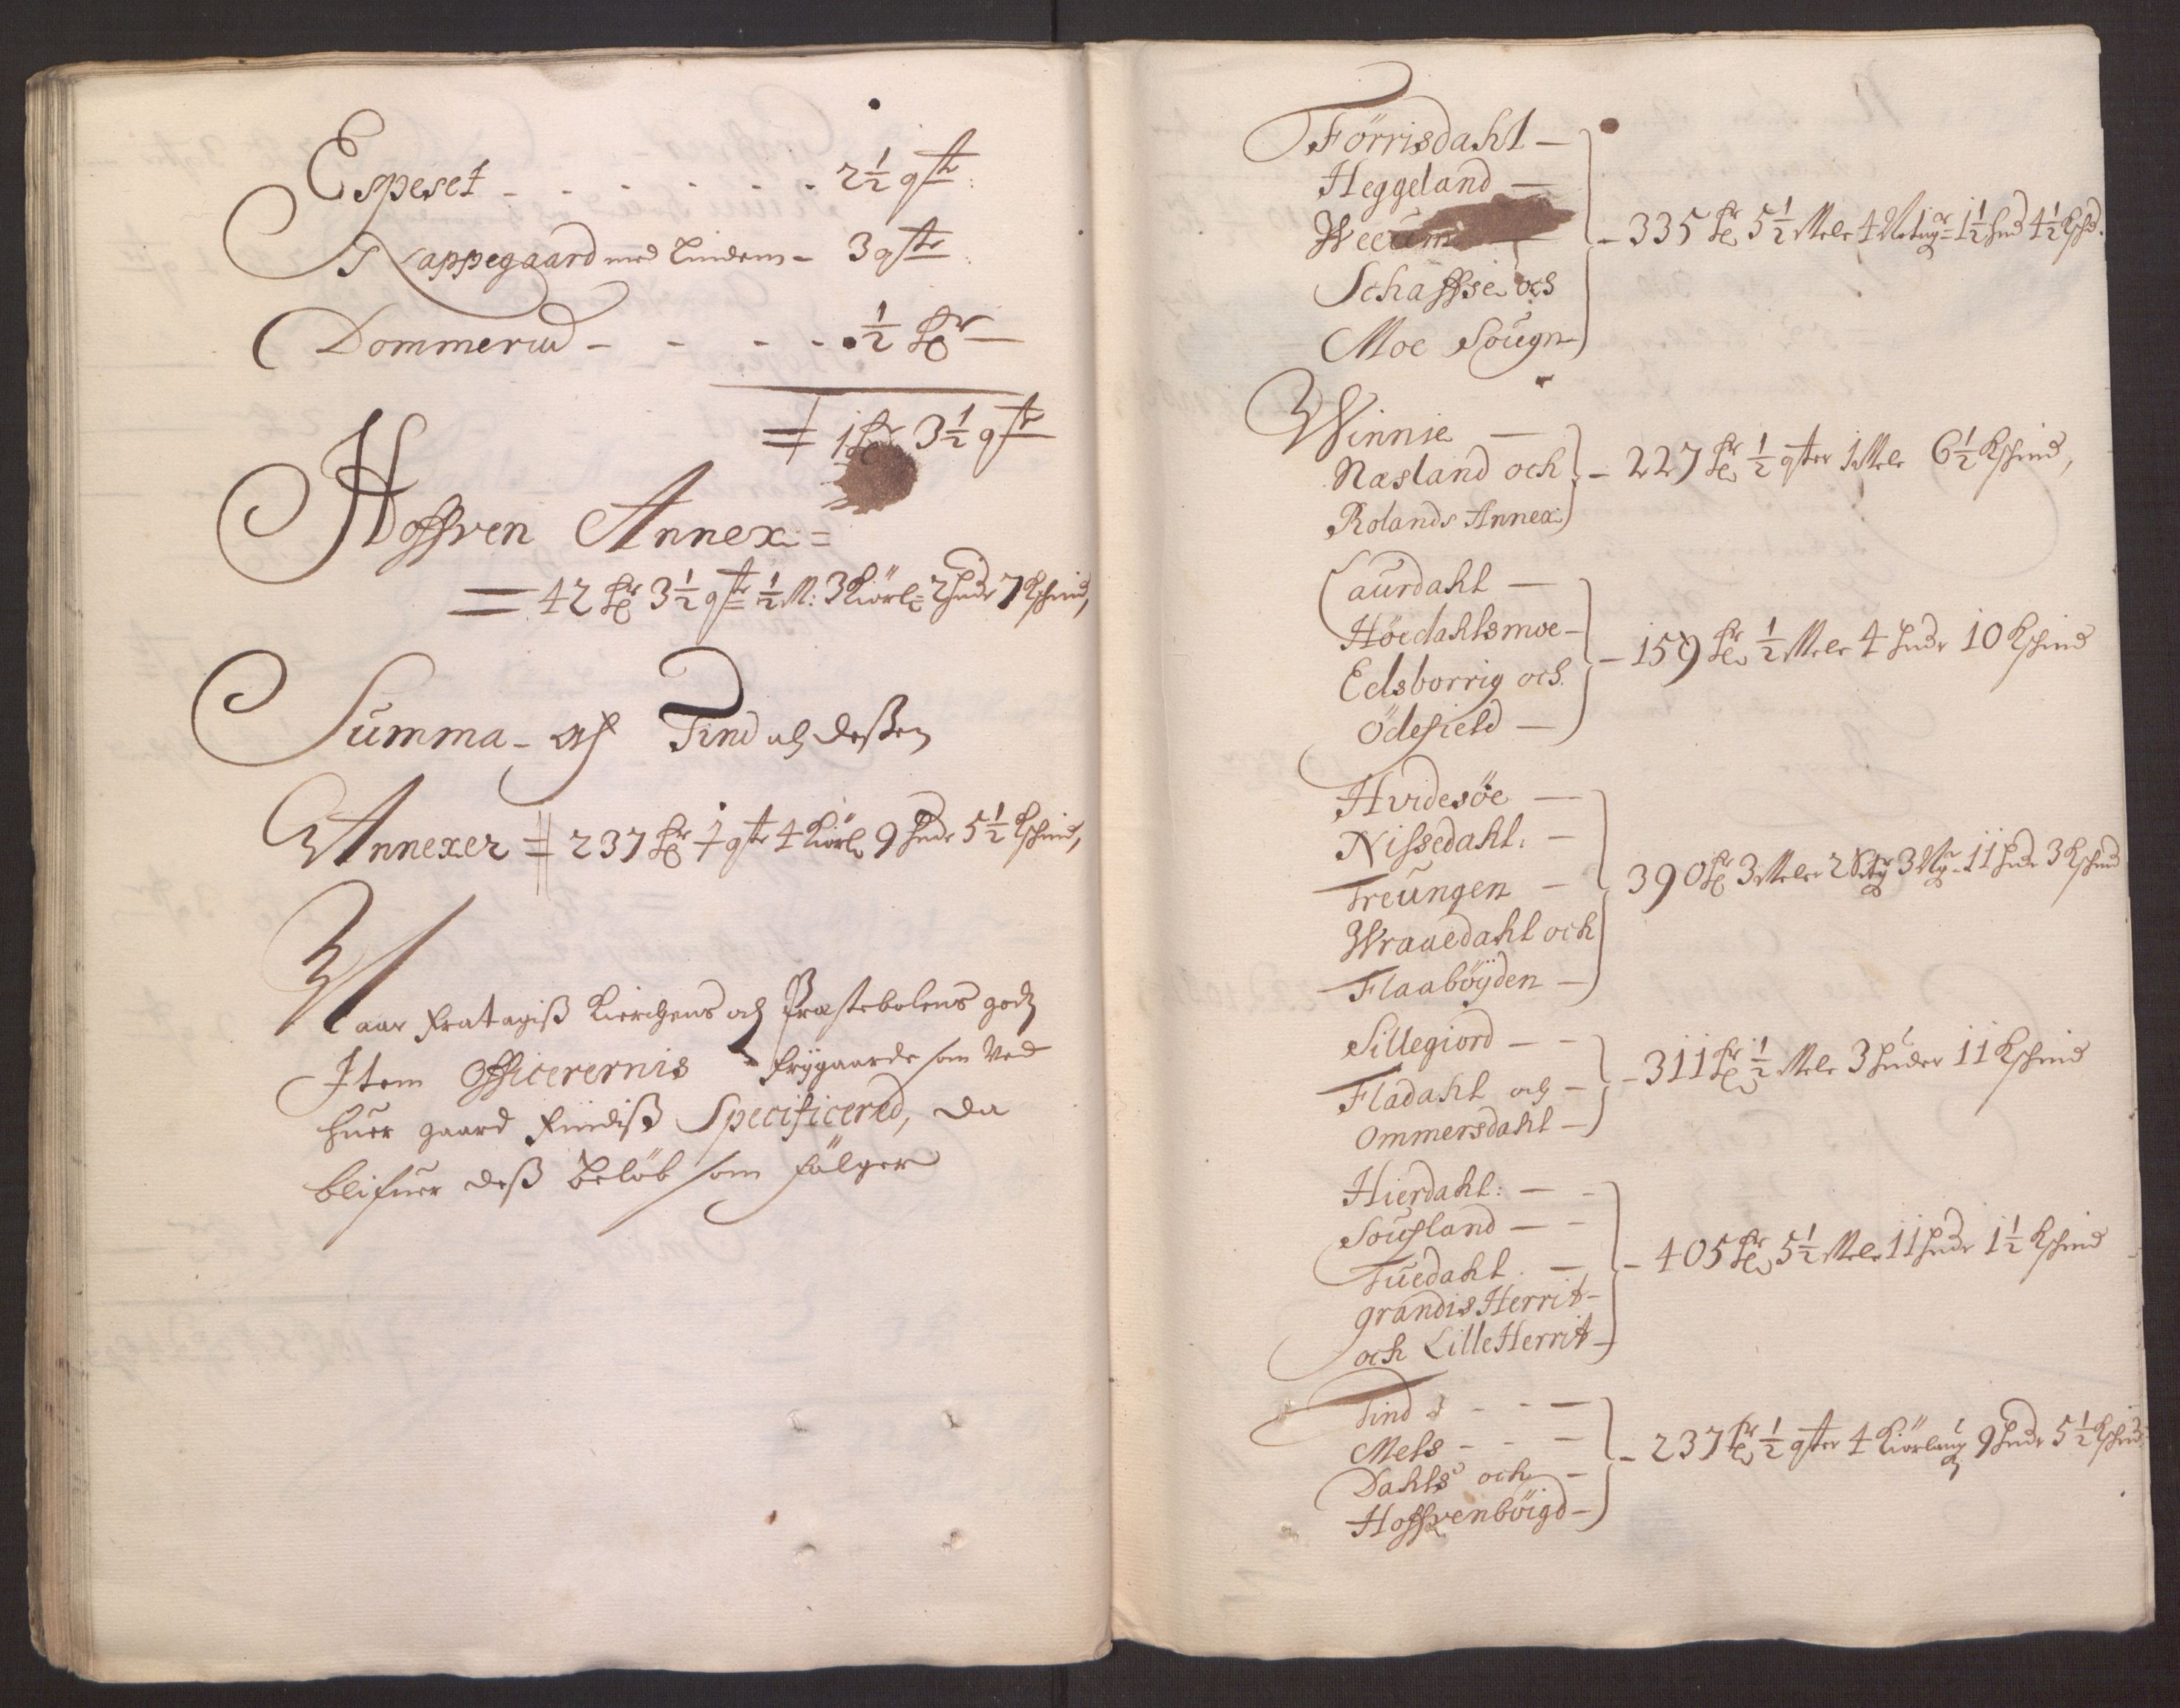 Espeset - - - - - - 2½ qtr:
Kappegaard med Lindem - 3 qtr:
Dommerud - - - - ½ tr
= 1 tr 3½ qtr
Hoffven Annex =
= 42 tr 3½ qtr ½ M: 3 Kiörl: 2 Huder 7 Kschind,
Summa - Aff Tind och dessen
Annexer = 237 tr ½ qtr 4 Kiörl 9 Huder 5½ Kschind,
Naar fratagiß Kierchens och Præstebolens godz
Item Officerernis frÿgaarde som Ved
huer gaard findiß Specificered, da
blifuer deß beløb som fölger
Förrisdahl -
Heggeland -
Weeum -
Schaffse och
Moe Sougn -
- 335 tr 5½ Mele 4 1½ Hud 4½ Kschd.
Winnie -
Næsland och
Rolands Annex
- 227 tr ½ qter 1 Mele 6½ Kschind,
Laurdahl -
Höedahlsmoe -
Edsborrig och
Ödefield -
- 159 tr ½ Mele 4 Huder 10 Kschind
Hvidesöe -
Nissedahl: -
Treungen -
Wrauedahl och
Flaaböÿden -
390 tr 3 Meler 2 3 11 Huder 3 Kschind
Sillegiord - -
Fladahl och -
Ommersdahl -
- 311 tr ½ Mele 3 Huder 11 Kschind
Hierdahl: - -
Soufland - -
Tuedahl -
grandis Herrit -
och Lille Herrit -
- 405 tr 5½ Mele 11 Huder 1½ Kschind
Tind - - -
Mels - - -
Dahls och -
Hoffvenböigd -
- 237 tr ½ qter 4 Kiörlaug 9 Huder 5½ Kschind